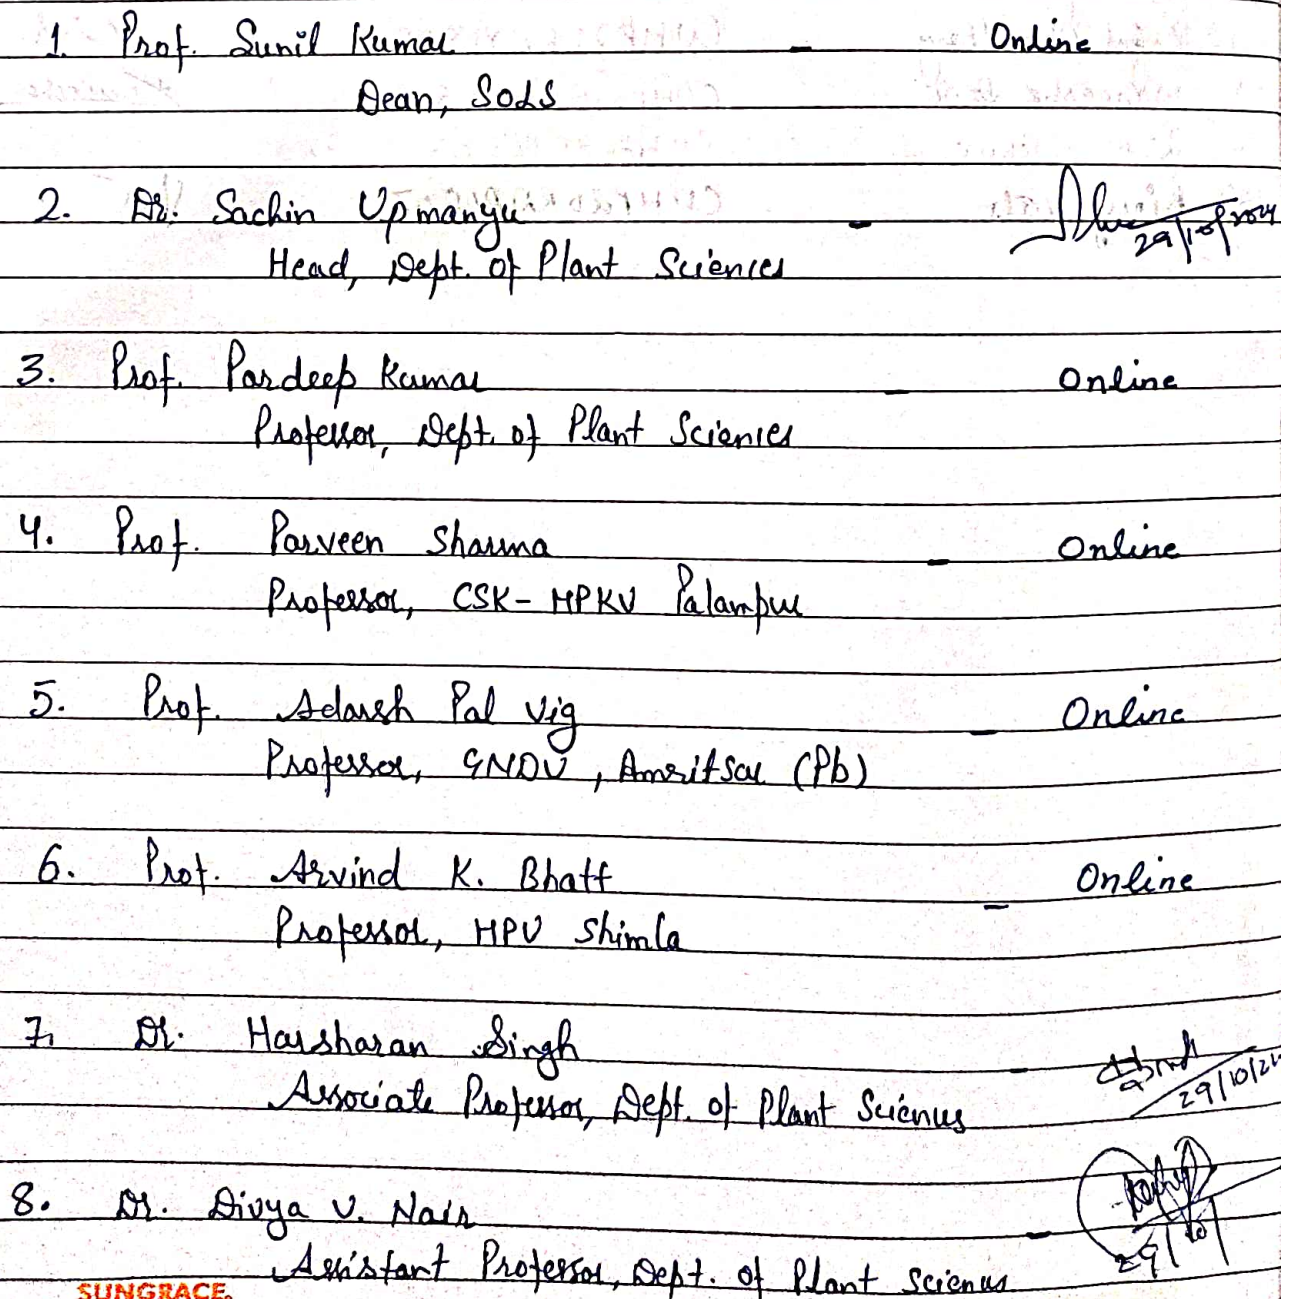 1. Prof. Sunil Kumar - Online
Dean, SoLS
2. Dr. Sachin Upmanyu - 29/10/2024
Head, Dept. of Plant Sciences
3. Prof. Pardeep Kumar - Online
Professor, Dept. of Plant Sciences
4. Prof. Parveen Sharma - Online
Professor, CSK-HPKV Palampur
5. Prof. Adarsh Pal Vig - Online
Professor, GNDU, Amritsar (Pb)
6. Prof. Arvind K. Bhatt - Online
Professor, HPU Shimla
7. Dr. Harsharan Singh - 29/10/24
Associate Professor, Dept. of Plant Sciences
8. Dr. Divya V. Nair - 29/10
Assistant Professor, Dept. of Plant Sciences
SUNGRACE